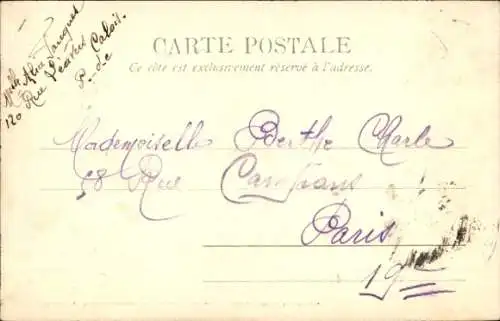 Mlle Alice
120 Rue Calais.
P.-de
CARTE POSTALE
Ce côté est exclusivement réservé à l'adresse.
Mademoiselle Berthe Charle
58 Rue
Paris
19e